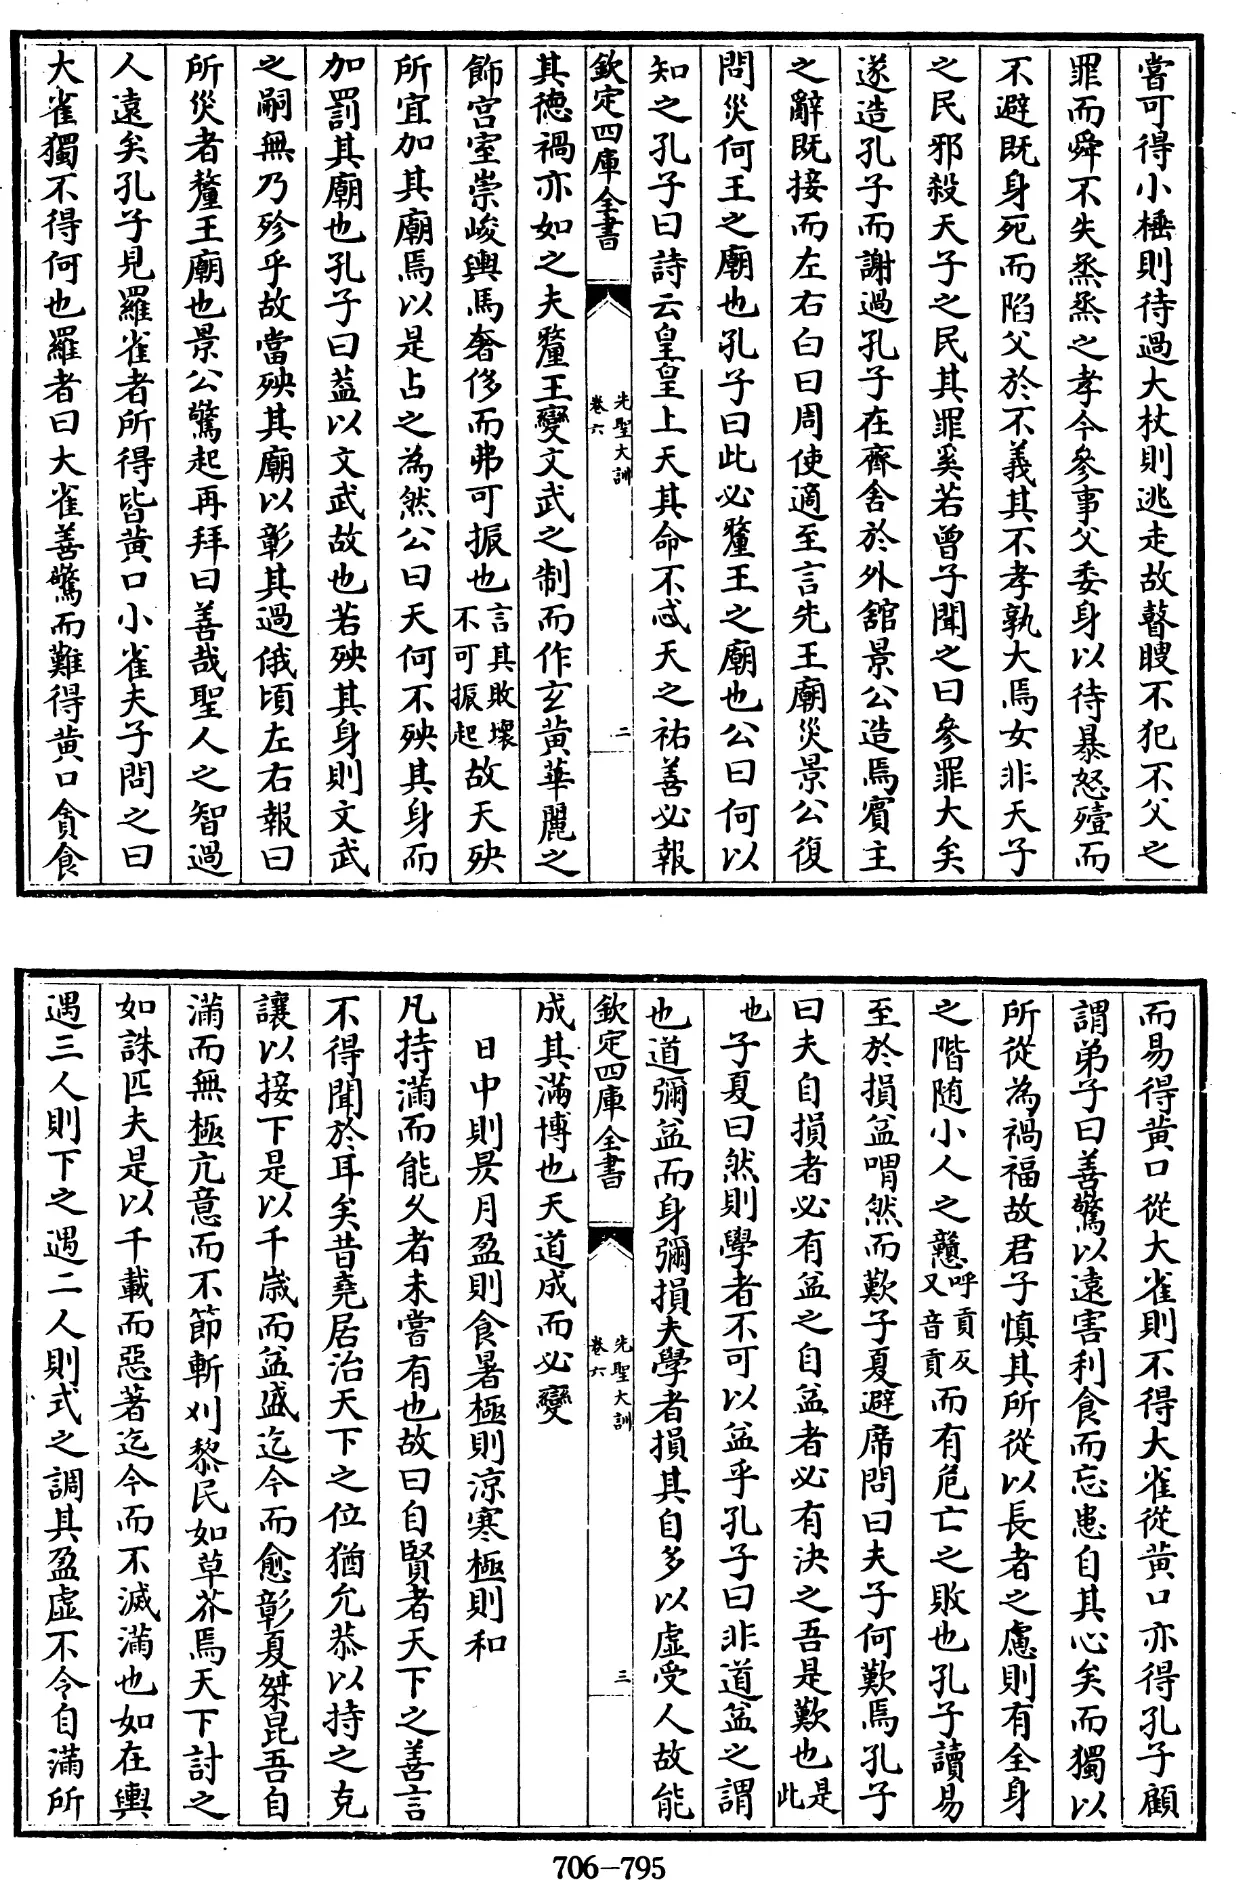 嘗可得小棰則待過大杖則逃走故瞽瞍不犯不父之
罪而舜不失烝烝之孝今參事父委身以待暴怒殪而
不避既身死而陷父於不義其不孝孰大焉女非天子
之民邪殺天子之民其罪奚若曾子聞之曰參罪大矣
遂造孔子而謝過孔子在齊舍於外舘景公造焉賓主
之辭既接而左右白曰周使適至言先王廟災景公復
問災何王之廟也孔子曰此必釐王之廟也公曰何以
知之孔子曰詩云皇皇上天其命不忒天之祐善必報
欽定四庫全書
先聖大訓
卷六
二
其德禍亦如之夫釐王變文武之制而作玄黄華麗之
飾宫室崇峻輿馬奢侈而弗可振也言其敗壞不可振起故天殃
所宜加其廟焉以是占之為然公曰天何不殃其身而
加罰其廟也孔子曰葢以文武故也若殃其身則文武
之嗣無乃殄乎故當殃其廟以彰其過俄頃左右報曰
所災者釐王廟也景公驚起再拜曰善哉聖人之智過
人遠矣孔子見羅雀者所得皆黄口小雀夫子問之曰
大雀獨不得何也羅者曰大雀善驚而難得黄口貪食
而易得黄口從大雀則不得大雀從黄口亦得孔子顧
謂弟子曰善驚以遠害利食而忘患自其心矣而獨以
所從為禍福故君子慎其所從以長者之慮則有全身
之階随小人之戇呼貢反又音貢而有危亡之敗也孔子讀易
至於損益喟然而歎子夏避席問曰夫子何歎焉孔子
曰夫自損者必有益之自益者必有決之吾是歎也是此
也子夏曰然則學者不可以益乎孔子曰非道益之謂
也道彌益而身彌損夫學者損其自多以虛受人故能
欽定四庫全書
先聖大訓
卷六
三
成其滿博也天道成而必變
日中則昃月盈則食暑極則涼寒極則和
凡持滿而能久者未嘗有也故曰自賢者天下之善言
不得聞於耳矣昔堯居治天下之位猶允恭以持之克
讓以接下是以千歳而益盛迄今而愈彰夏桀昆吾自
滿而無極亢意而不節斬刈黎民如草芥焉天下討之
如誅匹夫是以千載而惡著迄今而不滅滿也如在輿
遇三人則下之遇二人則式之調其盈虛不令自滿所
706-795